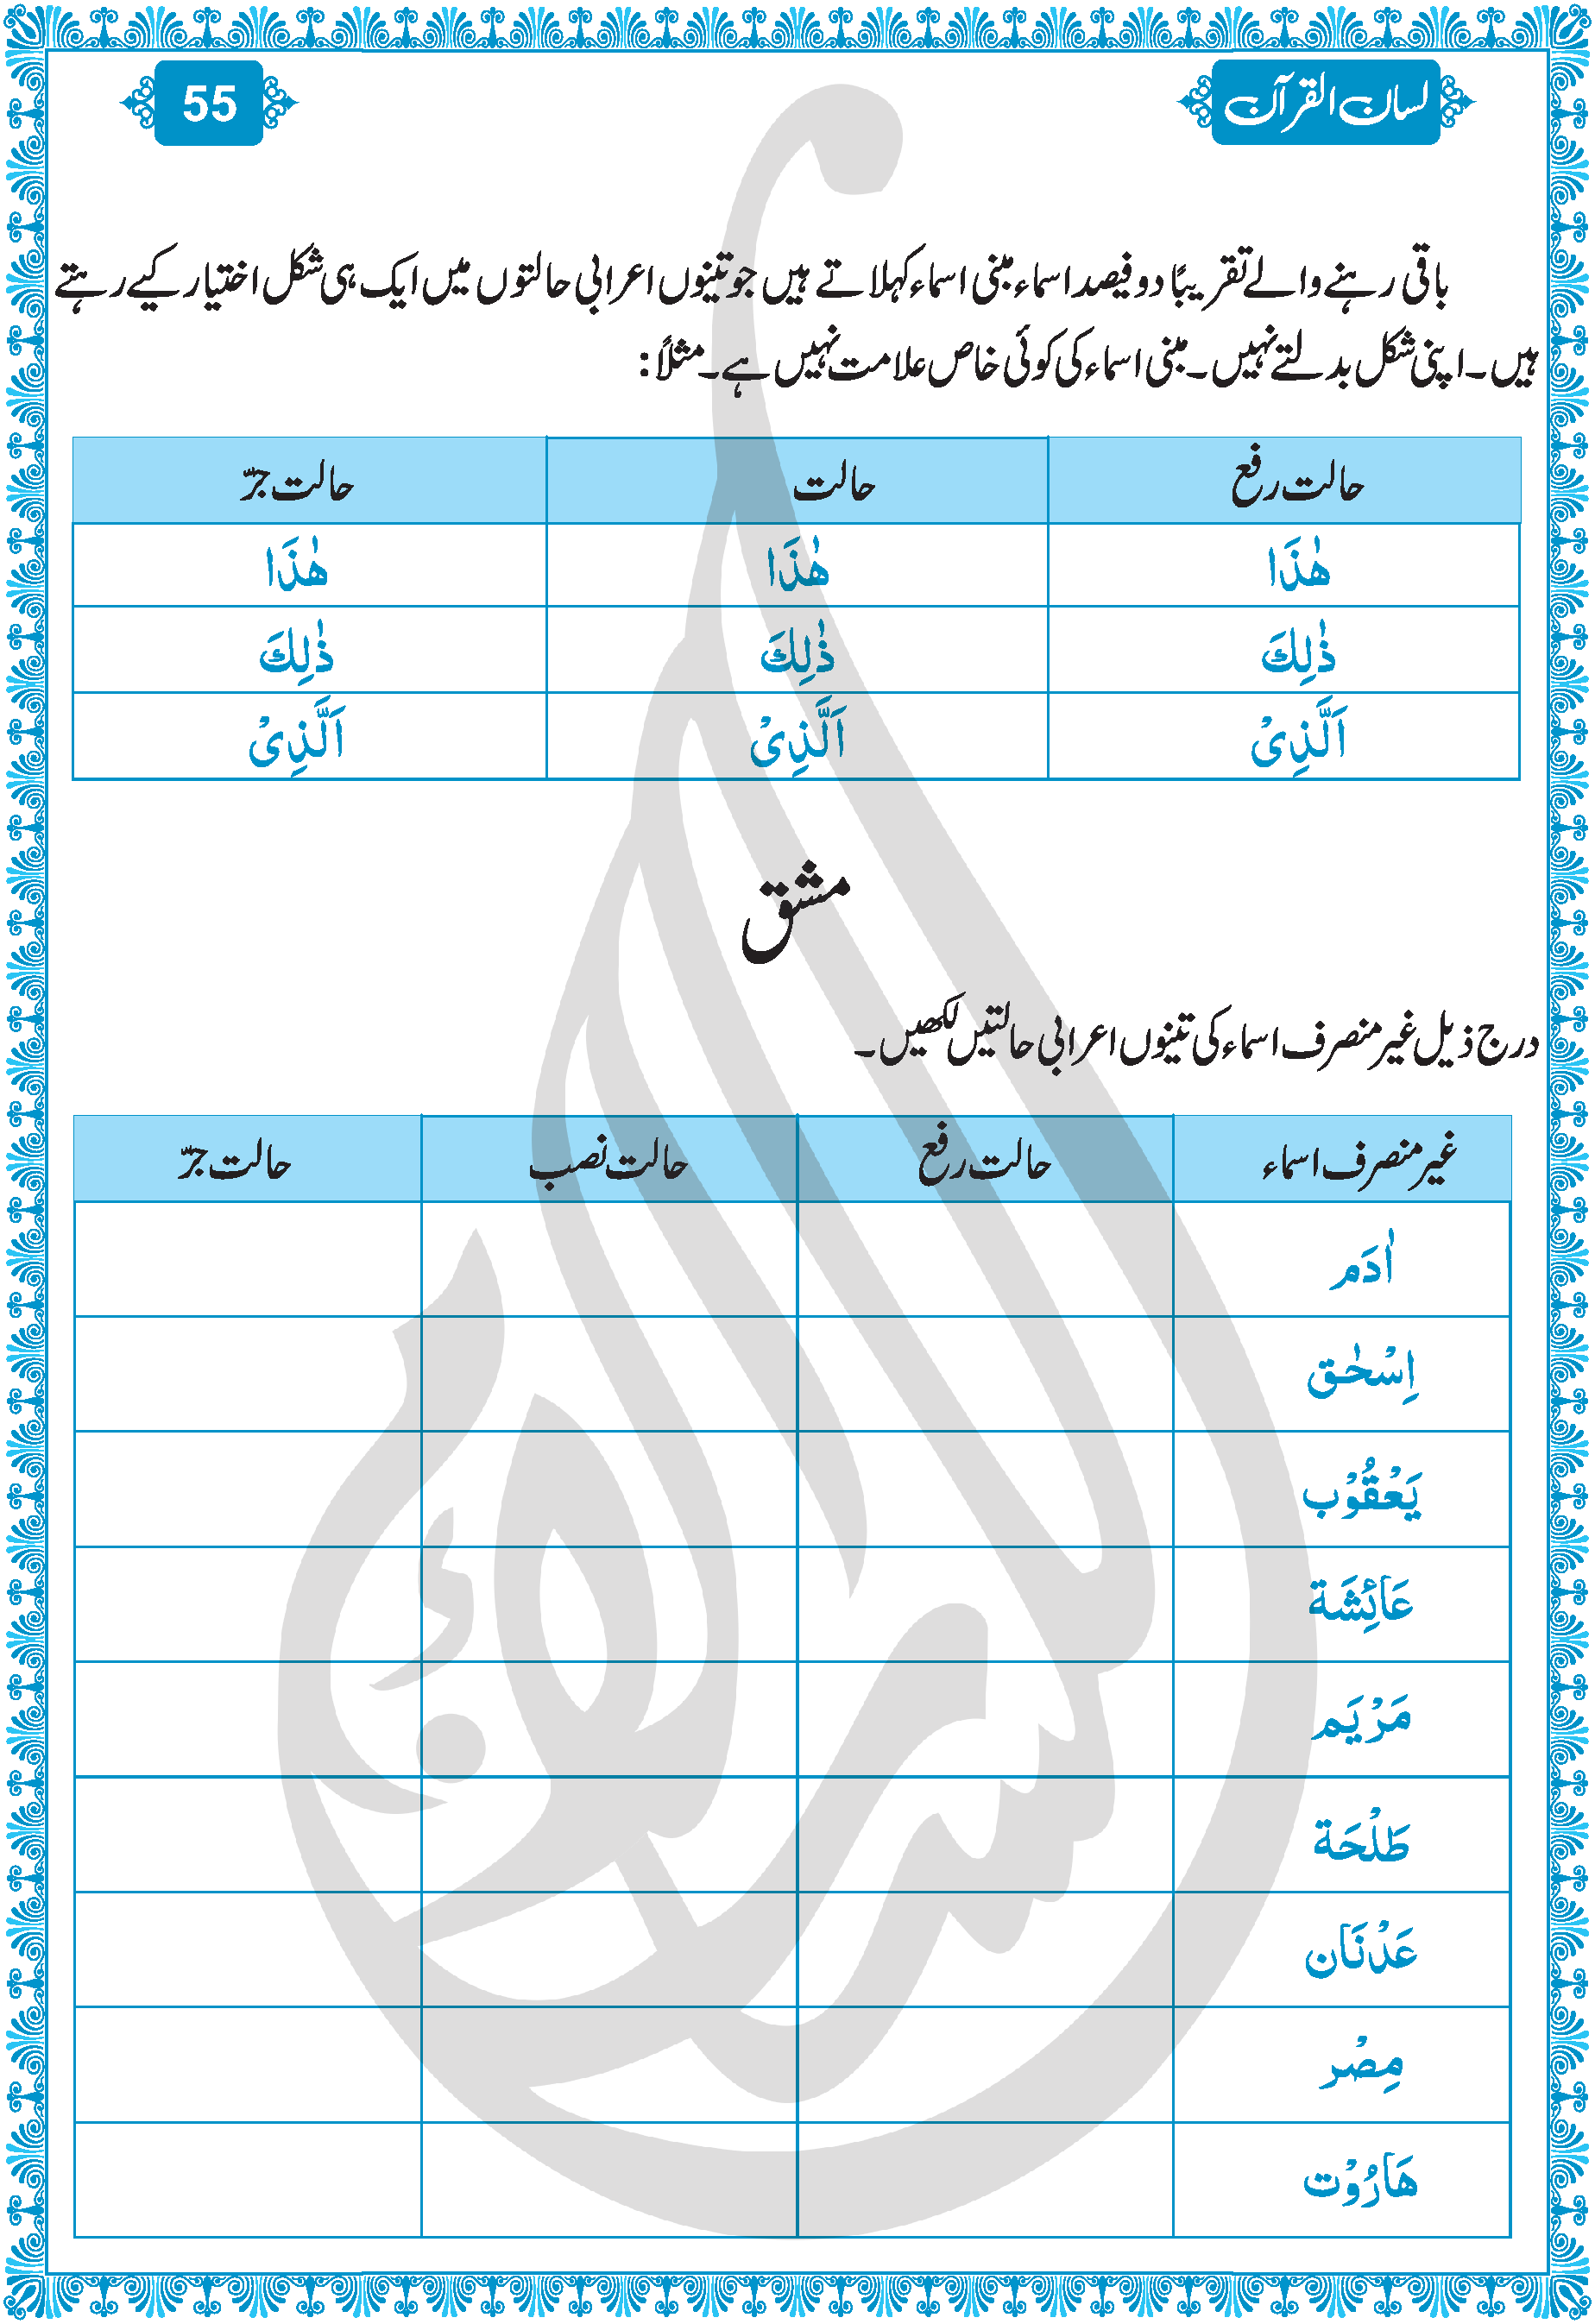 لسان القرآن
55
باقی رہنے والے تقریبًا دو فیصد اسماء مبنی اسماء کہلاتے ہیں جو تینوں اعرابی حالتوں میں ایک ہی شکل اختیار کیے رہتے
ہیں۔ اپنی شکل بدلتے نہیں۔ مبنی اسماء کی کوئی خاص علامت نہیں ہے۔ مثلاً:
حالت رفع حالت حالت جرّ
هٰذَا هٰذَا هٰذَا
ذٰلِكَ ذٰلِكَ ذٰلِكَ
اَلَّذِیْ اَلَّذِیْ اَلَّذِیْ
مشق
درج ذیل غیر منصرف اسماء کی تینوں اعرابی حالتیں لکھیں۔
غیر منصرف اسماء حالت رفع حالت نصب حالت جرّ
اٰدَم
اِسْحٰق
یَعْقُوْب
عَائِشَة
مَرْیَم
طَلْحَة
عَدْنَان
مِصْر
هَارُوْت